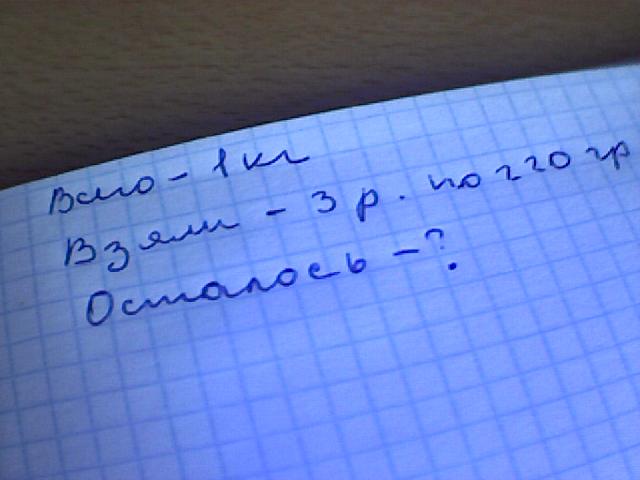 Всего - 1 кг
Взяли - 3 р. по 220 гр
Осталось - ?